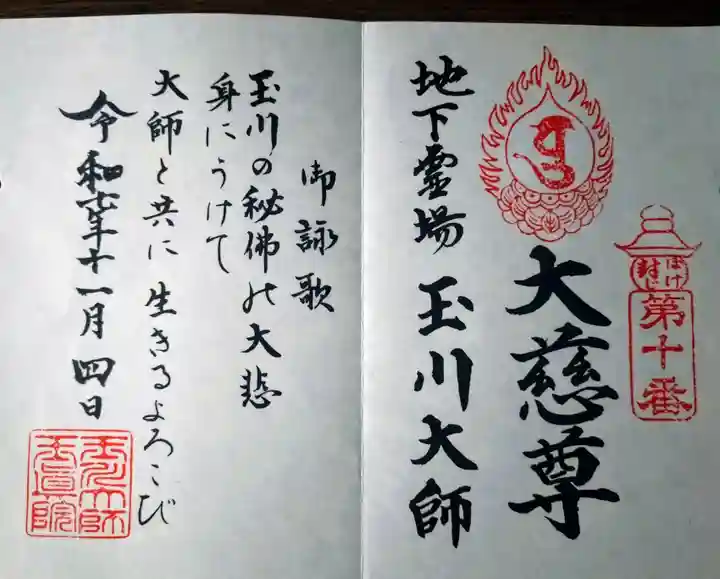 ぼけ封じ
第十番
大慈尊
地下霊場 玉川大師
御詠歌
玉川の秘佛の大悲
身にうけて
大師と共に 生きるよろこび
令和六年十一月四日
玉川大師
玉眞院